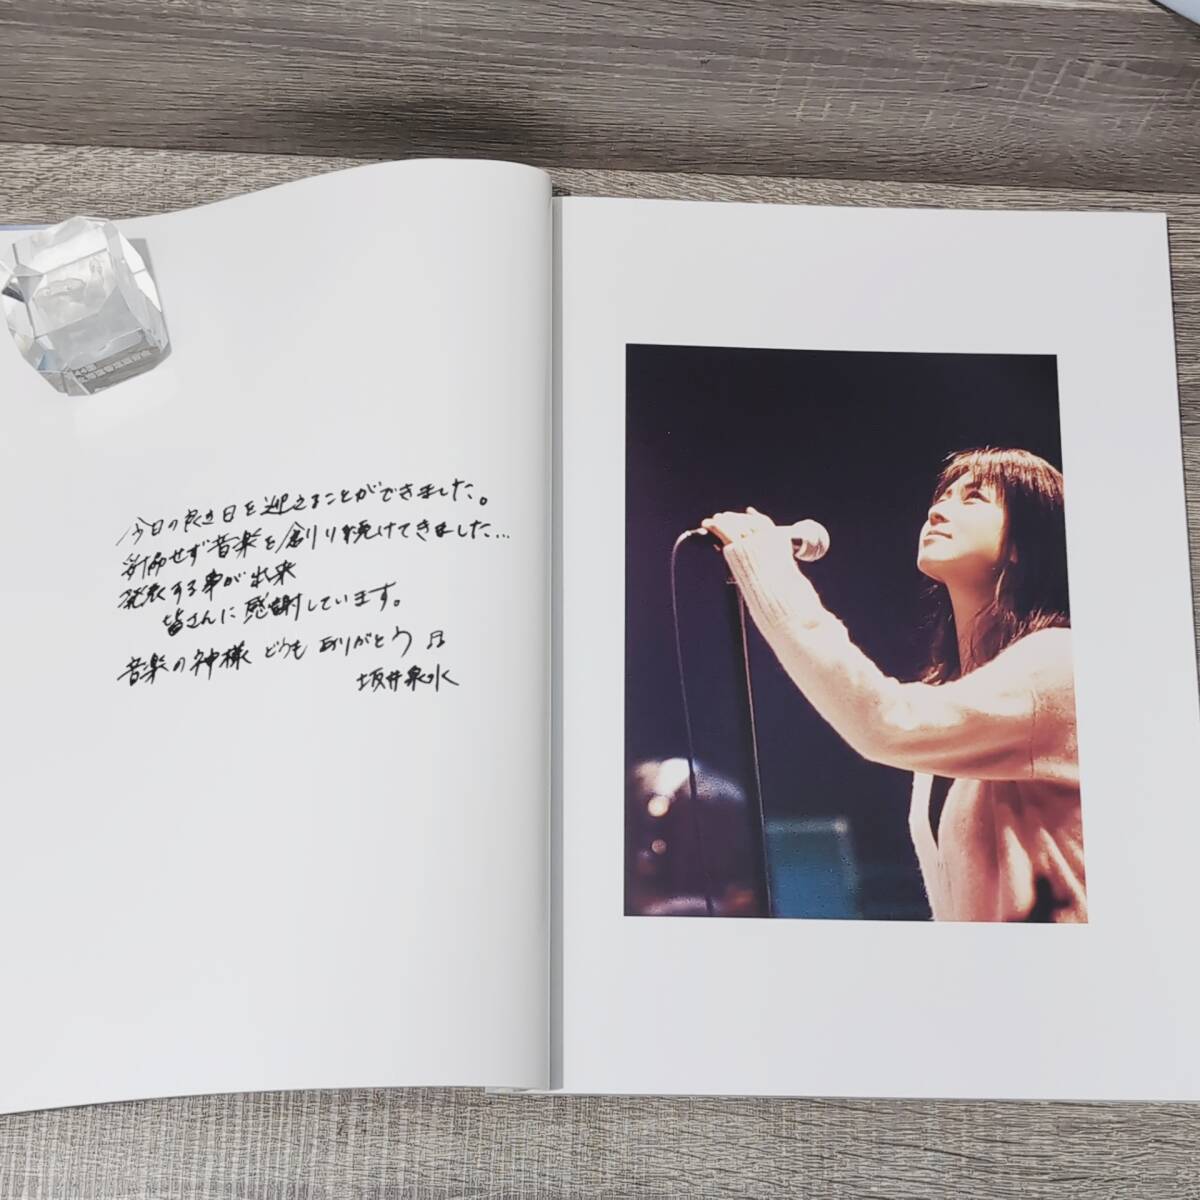 今日の良き日を迎えることができました。
妥協せず音楽を創り続けてきました…
発表する事が出来
皆さんに感謝しています。
音楽の神様 どうもありがとう ♬
坂井泉水